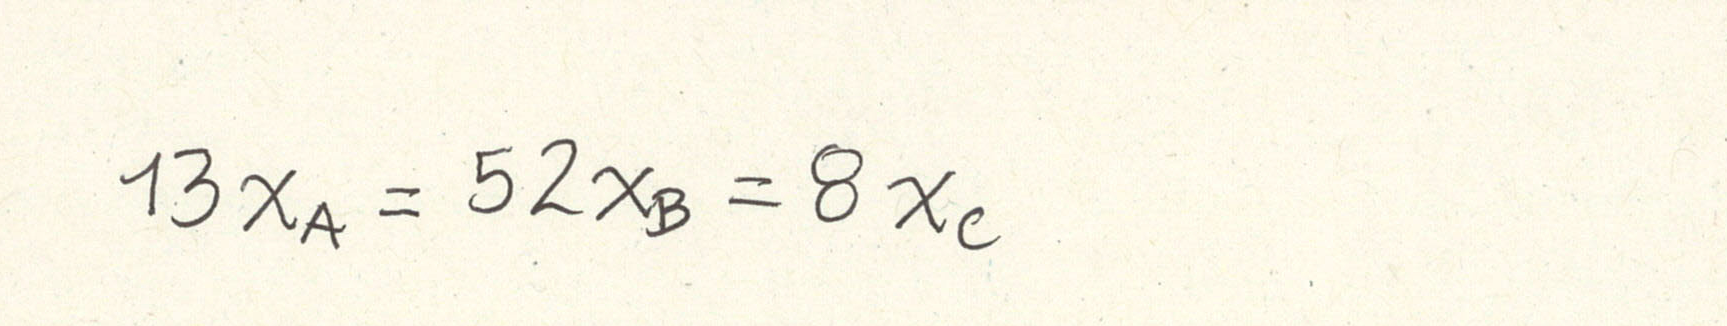 13x_A = 52x_B = 8x_C